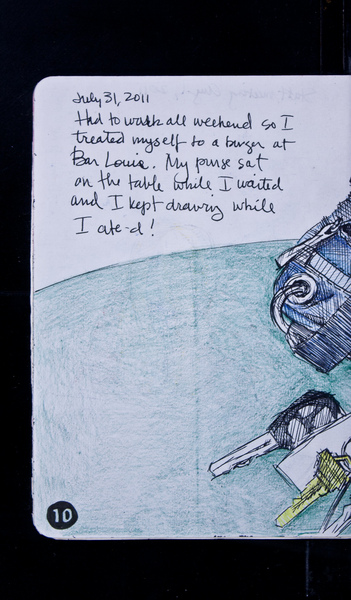 July 31, 2011
Had to work all weekend so I
treated myself to a burger at
Bar Louie. My purse sat
on the table while I waited
and I kept drawing while
I ate-d!
10